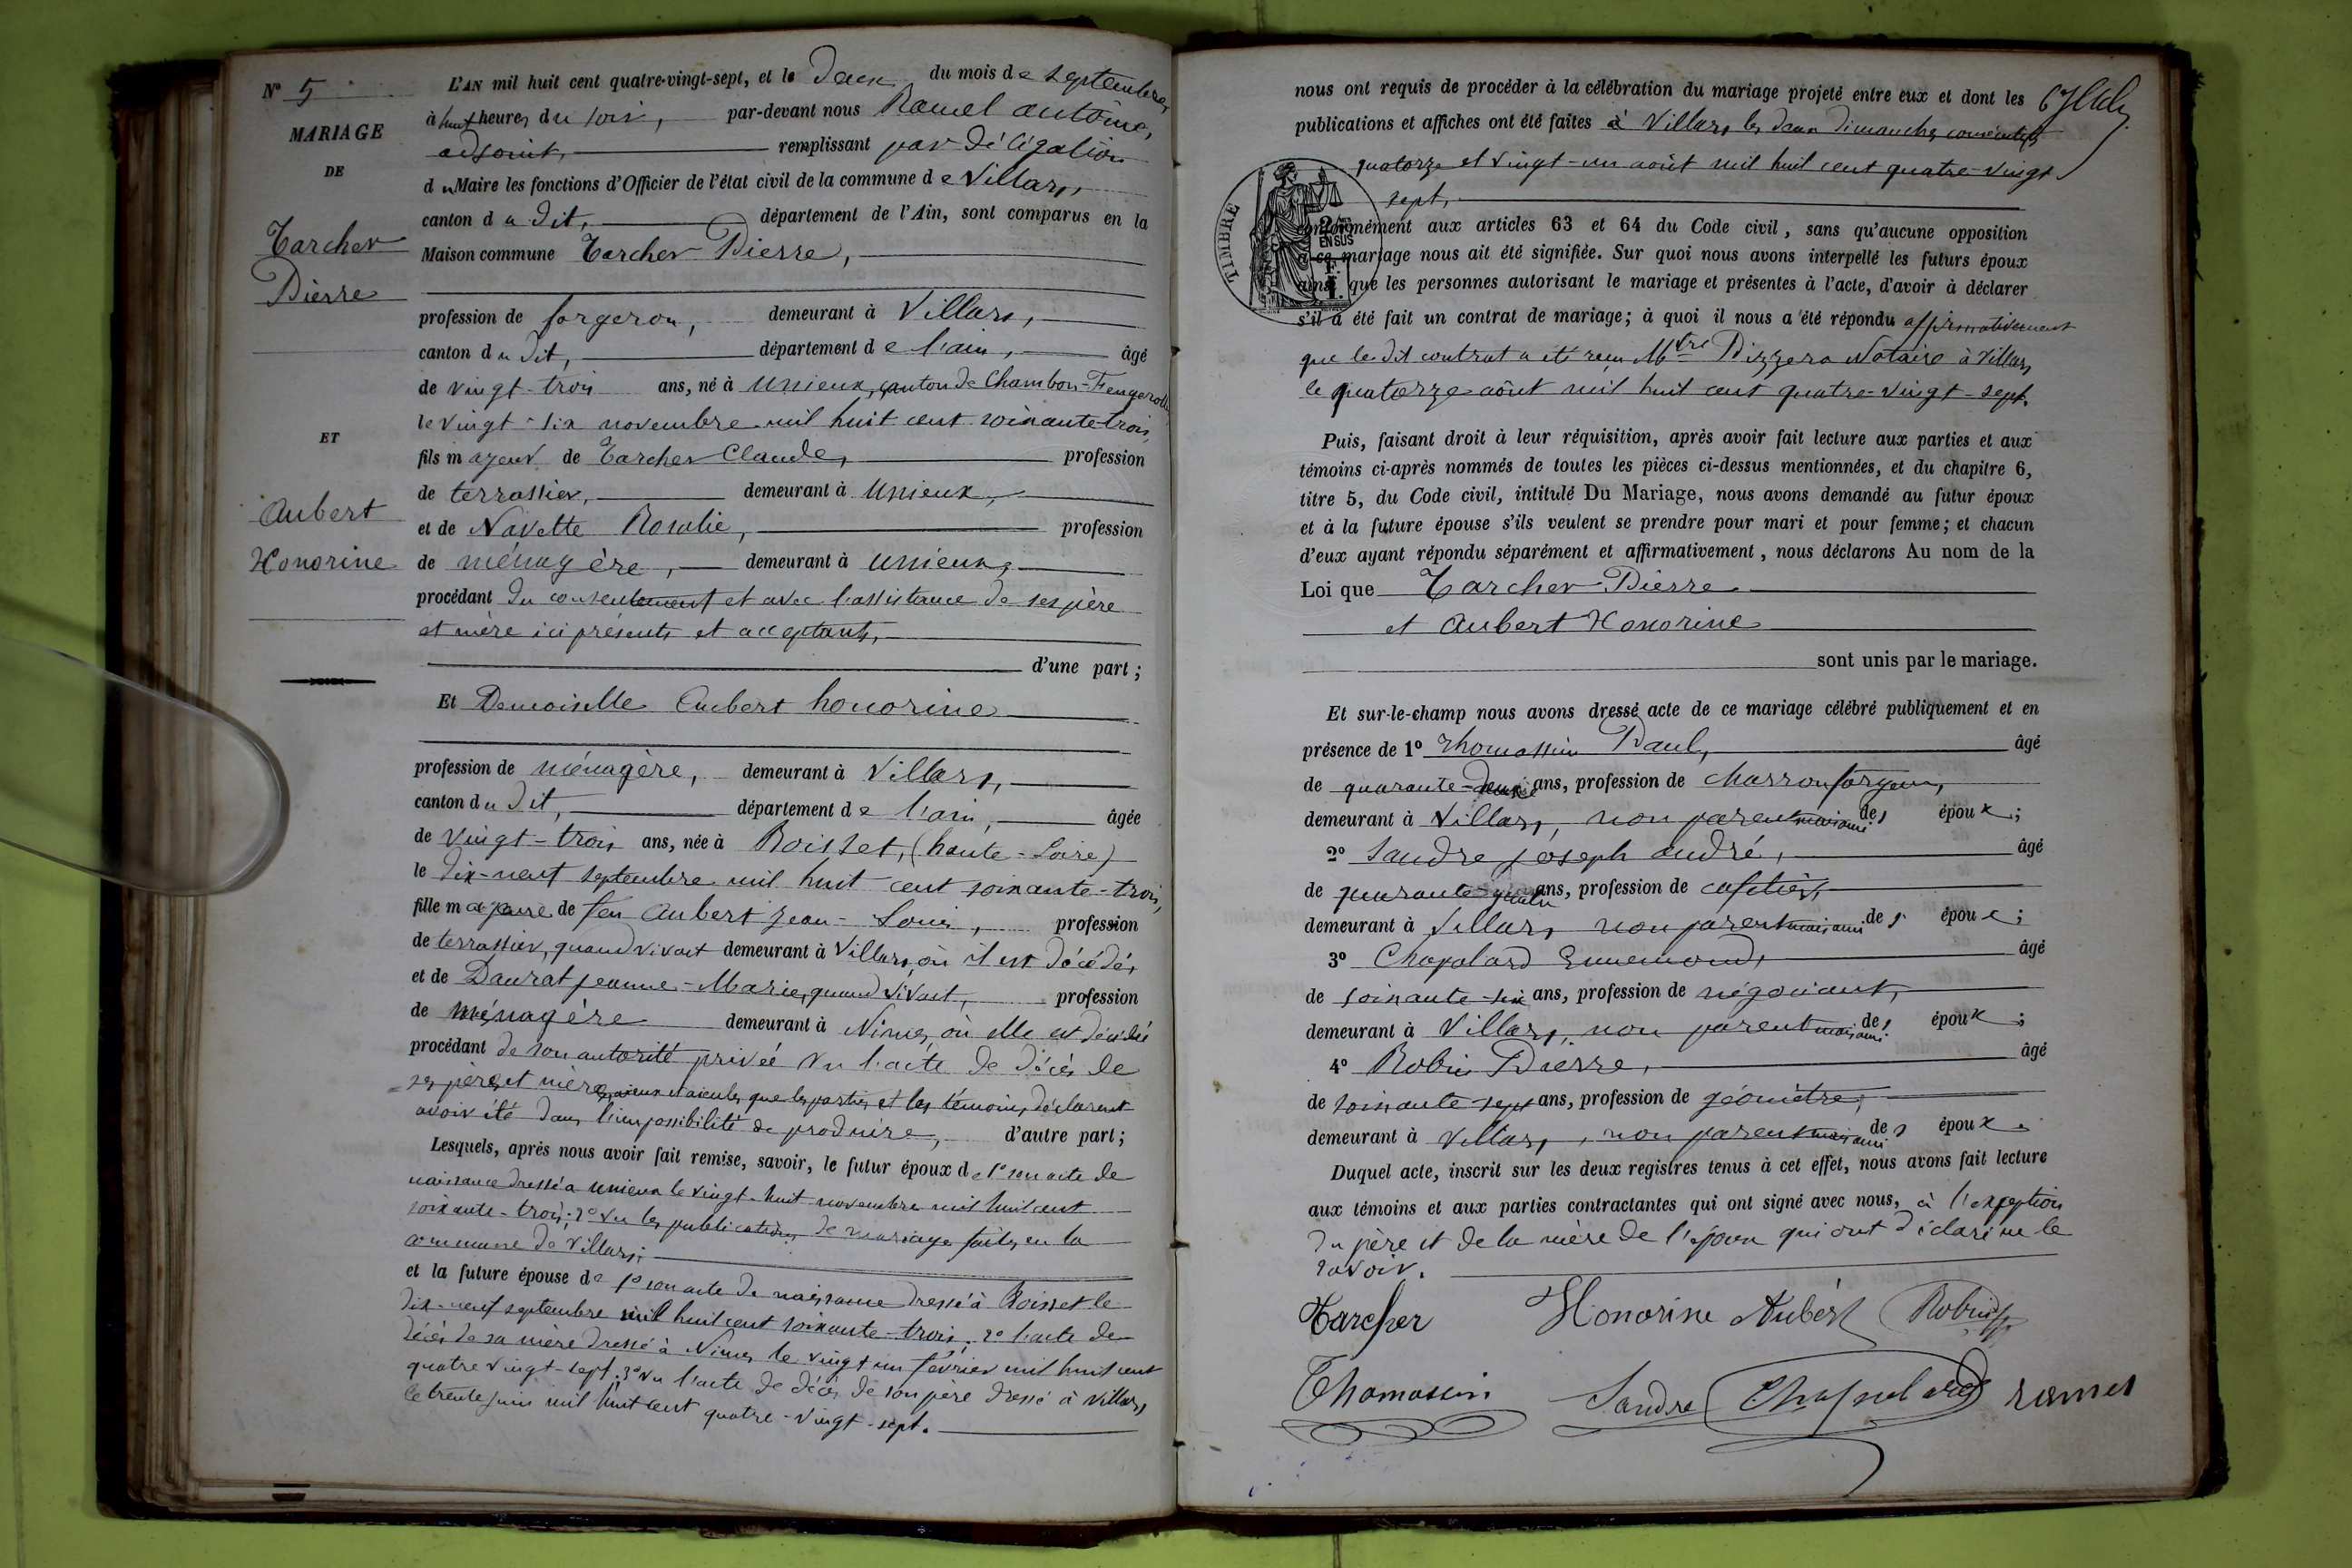 N° 5
MARIAGE
DE
Tarcher
Pierre
ET
Aubert
Honorine
L'AN mil huit cent quatre-vingt-sept, et le deux du mois de septembre,
à huit heures du soir, par-devant nous Ramel antoine,
adjoint, remplissant par délégation
du Maire les fonctions d'Officier de l'état civil de la commune de Villars,
canton du dit, département de l'Ain, sont comparus en la
Maison commune Tarcher Pierre,
profession de forgeron, demeurant à Villars,
canton du dit, département de l'ain, âgé
de vingt-trois ans, né à Unieux, canton de Chambon-Feugerolles
le vingt-six novembre mil huit cent soixante-trois,
fils majeur de Tarcher Claude, profession
de terrassier, demeurant à Unieux,
et de Navette Rosalie, profession
de ménagère, demeurant à Unieux,
procédant du consentement et avec l'assistance de ses père
et mère ici présents et acceptants,
d'une part;
Et Demoiselle Aubert honorine
profession de ménagère, demeurant à Villars,
canton du dit, département de l'ain, âgée
de vingt-trois ans, née à Boisset, (haute-Loire)
le dix-neuf septembre mil huit cent soixante-trois,
fille majeure de feu Aubert Jean-Louis, profession
de terrassier, quand vivait demeurant à Villars, où il est décédé,
et de Daurat jeanne-Marie, quand vivait, profession
de ménagère demeurant à Nimes, où elle est décédée
procédant de son autorité privée vu l'acte de décès de
ses père et mère, aieux et aieules que les parties et les témoins déclarent
avoir été dans l'impossibilité de produire, d'autre part;
Lesquels, après nous avoir fait remise, savoir, le futur époux de 1° son acte de
naissance dressé à Unieux le vingt-huit novembre mil huit cent
soixante-trois; 2° vu les publications de mariage faites en la
commune de Villars;
et la future épouse de 1° son acte de naissance dressé à Boisset le
dix-neuf septembre mil huit cent soixante-trois; 2° l'acte de
décès de sa mère dressé à Nimes le vingt un février mil huit cent
quatre vingt-sept. 3° vu l'acte de décès de son père dressé à Villars
le trente juin mil huit cent quatre-vingt-sept.
nous ont requis de procéder à la célébration du mariage projeté entre eux et dont les
publications et affiches ont été faites à Villars, les deux dimanches consécutifs
quatorze et vingt-un août mil huit cent quatre-vingt
sept,
TIMBRE
2/10
EN SUS
1 F.
conformément aux articles 63 et 64 du Code civil, sans qu'aucune opposition
à ce mariage nous ait été signifiée. Sur quoi nous avons interpellé les futurs époux
ainsi que les personnes autorisant le mariage et présentes à l'acte, d'avoir à déclarer
s'il a été fait un contrat de mariage; à quoi il nous a été répondu affirmativement
que le dit contrat a été reçu Mtre Pizzera Notaire à Villars,
le quatorze août mil huit cent quatre-vingt-sept.
Puis, faisant droit à leur réquisition, après avoir fait lecture aux parties et aux
témoins ci-après nommés de toutes les pièces ci-dessus mentionnées, et du chapitre 6,
titre 5, du Code civil, intitulé Du Mariage, nous avons demandé au futur époux
et à la future épouse s'ils veulent se prendre pour mari et pour femme; et chacun
d'eux ayant répondu séparément et affirmativement, nous déclarons Au nom de la
Loi que Tarcher Pierre
et Aubert Honorine
sont unis par le mariage.
Et sur-le-champ nous avons dressé acte de ce mariage célébré publiquement et en
présence de 1° Thomassin Paul, âgé
de quarante- ans, profession de charron forgeron,
demeurant à Villars, non parent mais ami des époux;
2° Sandre joseph andré, âgé
de quarante-quatre ans, profession de cafetier,
demeurant à Villars, non parent mais ami des époux;
3° Chapolard Ennemond, âgé
de soixante-six ans, profession de négociant,
demeurant à Villars, non parent mais ami des époux;
4° Robin Pierre, âgé
de soixante-sept ans, profession de géomètre,
demeurant à Villars, non parent mais ami des époux.
Duquel acte, inscrit sur les deux registres tenus à cet effet, nous avons fait lecture
aux témoins et aux parties contractantes qui ont signé avec nous, à l'exception
du père et de la mère de l'époux qui ont déclaré ne le
savoir.
Tarcher Honorine Aubert Robin
Thomassin Sandre Chapolard ramel